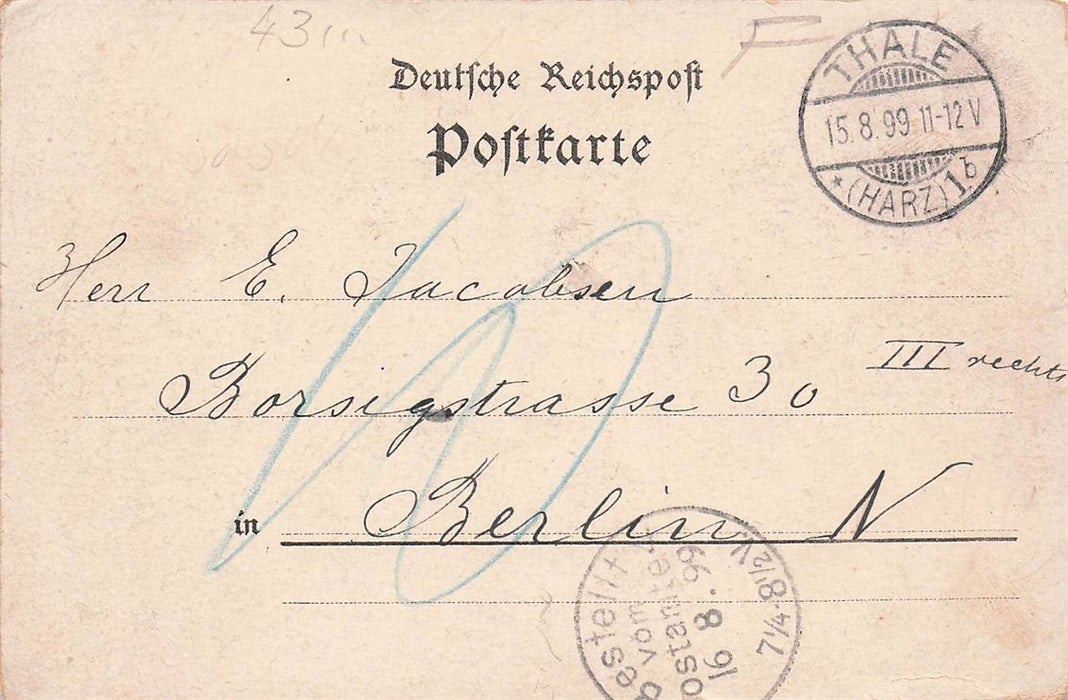 43
Deutsche Reichspost
Postkarte
THALE
15.8.99 11-12V
* (HARZ) 1 b
Herr E. Jacobsen
Borsigstrasse 30 III rechts
in Berlin N
Bestellt
vom
Postamte
16 8. 99
7 1/4-8 1/2 V.